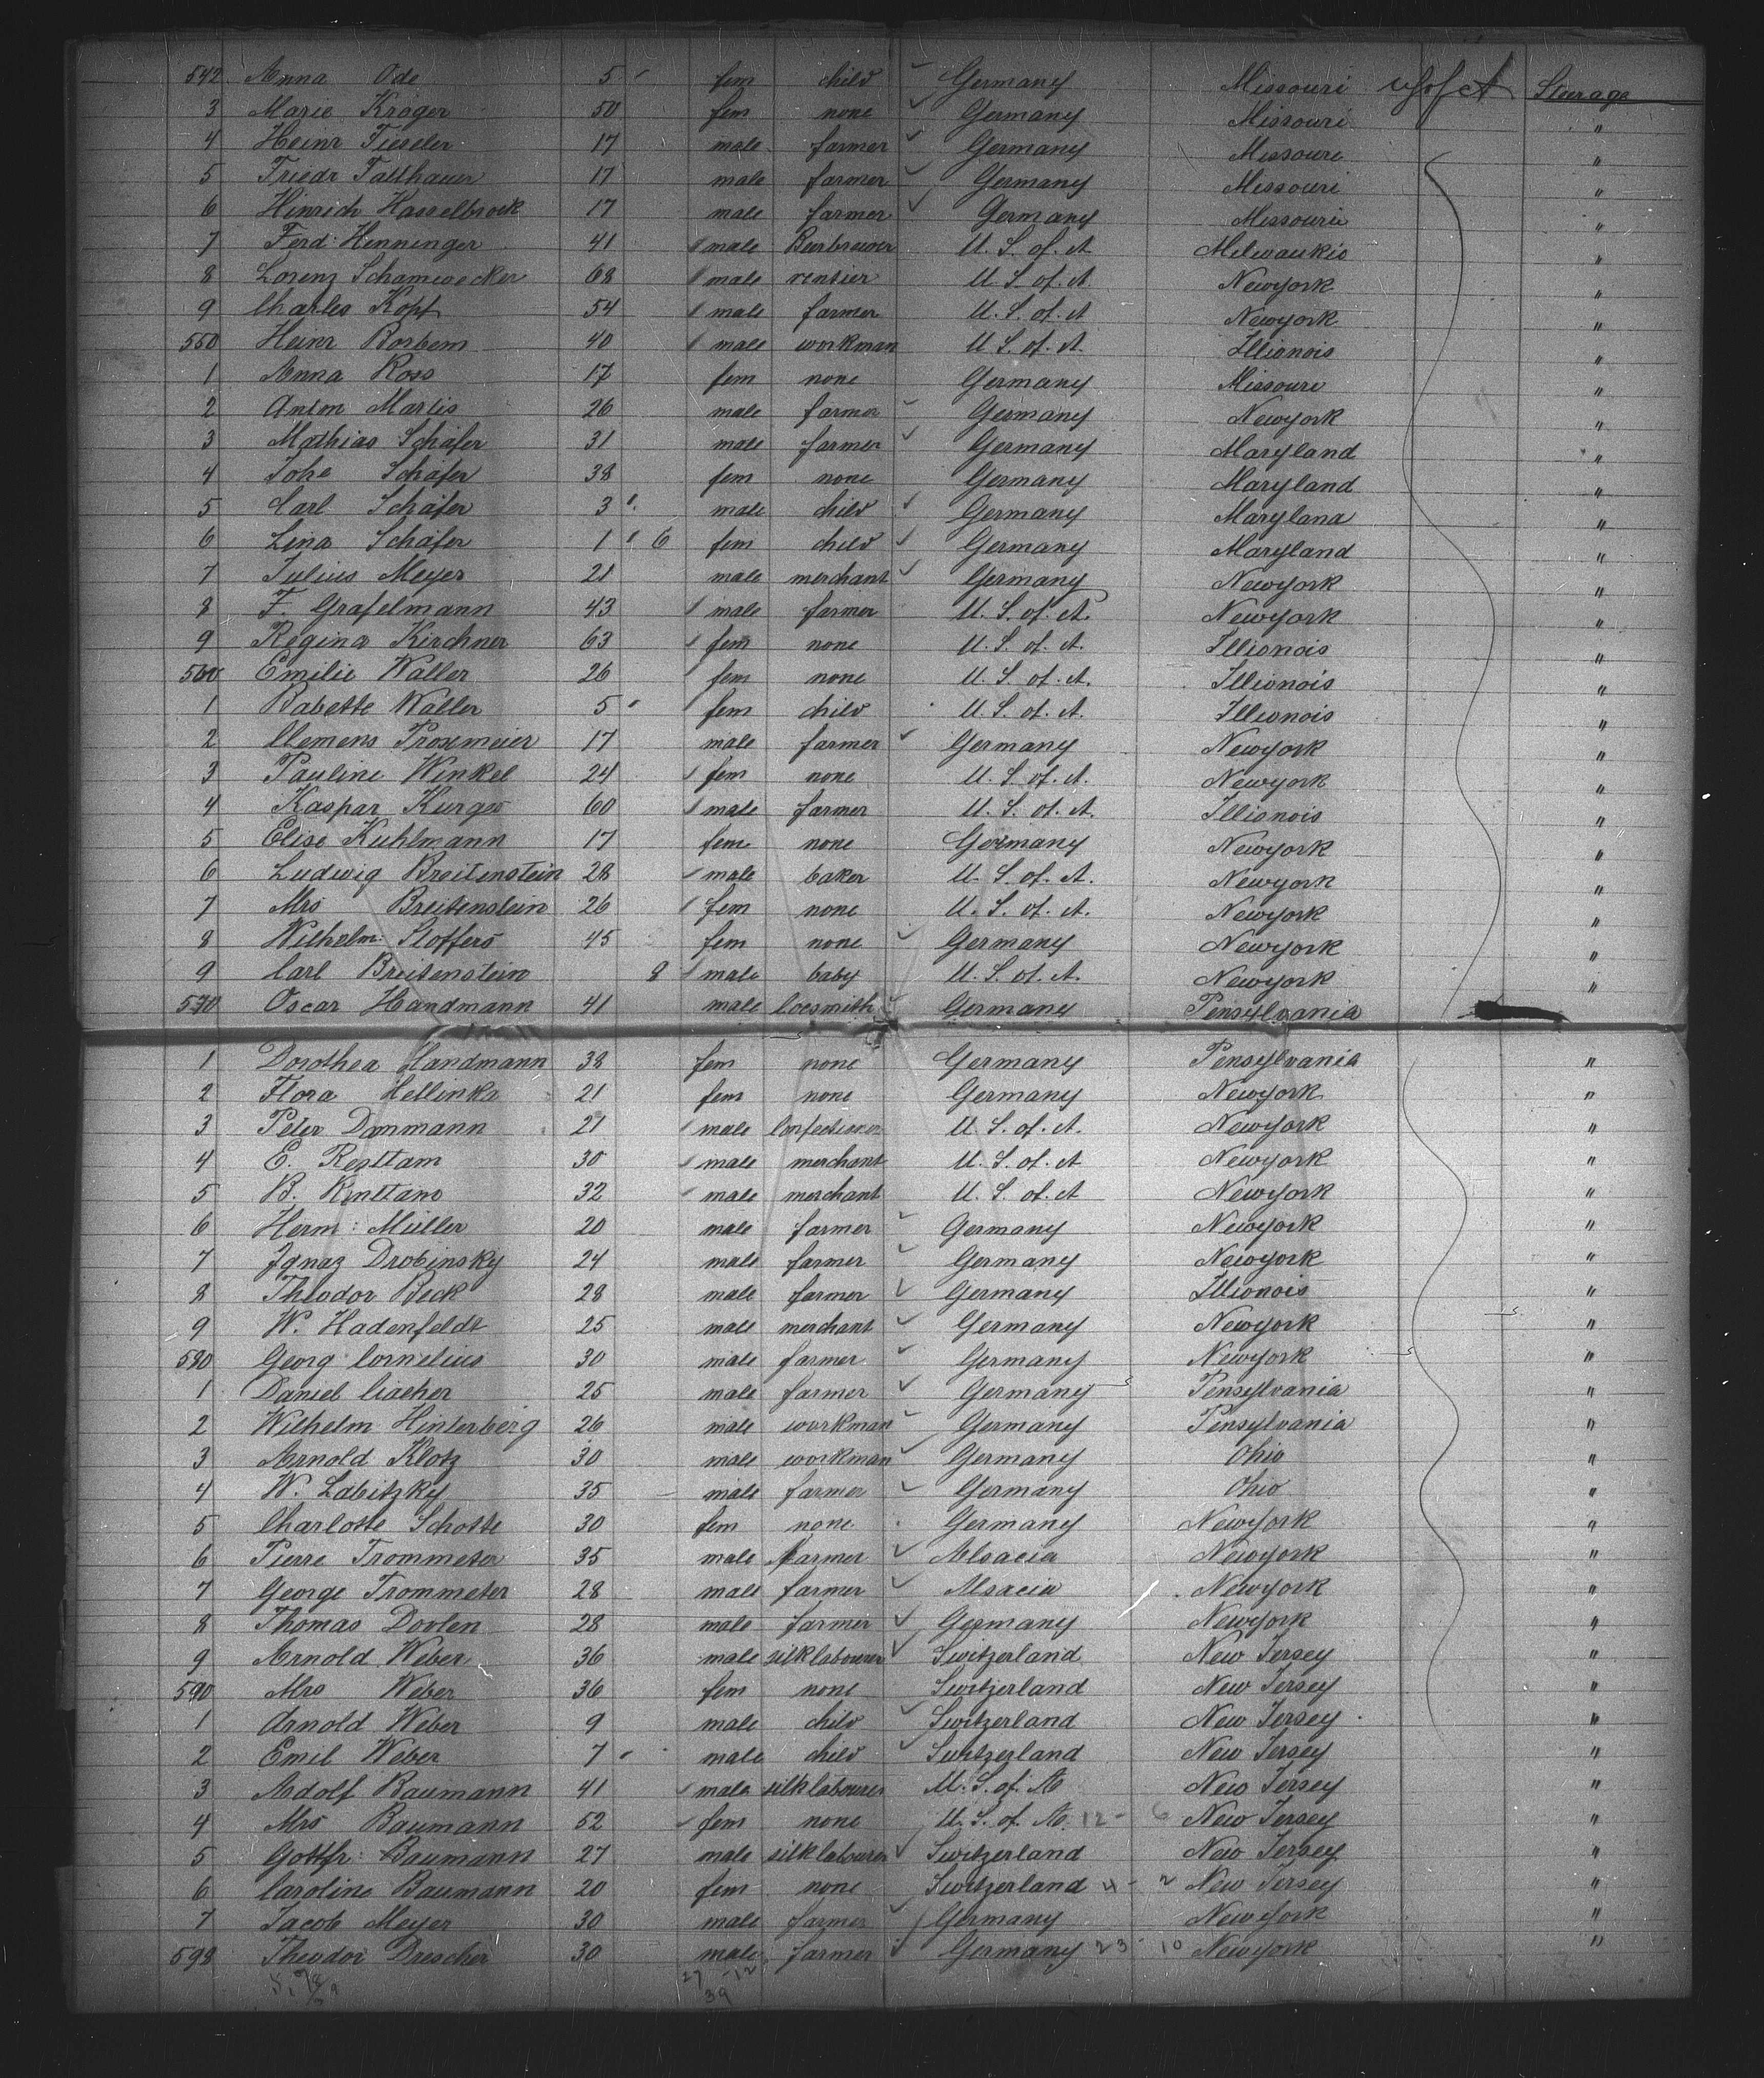 542 Anna Ode 5 fem child Germany Missouri U S of A Steerage
3 Marie Kröger 50 fem none Germany Missouri "
4 Heinr Fieseler 17 male farmer Germany Missouri "
5 Friedr Fallhauer 17 male farmer Germany Missouri "
6 Hinrich Hasselbrock 17 male farmer Germany Missouri "
7 Ferd: Henninger 41 male Beerbrewer U. S. of. A Milwaukie "
8 Lorenz Schamwecker 68 male rentier U. S. of. A. Newyork "
9 Charles Kopf 54 male farmer U. S. of. A Newyork "
550 Heinr Borbem 40 male workman U. S. of. A. Illionois "
1 Anna Ross 17 fem none Germany Missouri "
2 Anton Martis 26 male farmer Germany Newyork "
3 Mathias Schäfer 31 male farmer Germany Maryland "
4 Johe Schäfer 38 fem none Germany Maryland "
5 Carl Schäfer 3 male child Germany Maryland "
6 Lina Schäfer 1 6 fem child Germany Maryland "
7 Julius Meyer 21 male merchant Germany Newyork "
8 F. Grafelmann 43 male farmer U. S. of. A. Newyork "
9 Regina Kirchner 63 fem none U. S. of. A. Illionois "
560 Emilie Waller 26 fem none U. S. of. A. Illionois "
1 Babette Waller 5 fem child U. S. of. A. Illionois "
2 Clemens Proxmeier 17 male farmer Germany Newyork "
3 Pauline Winkel 24 fem none U. S. of. A. Newyork "
4 Kaspar Kurges 60 male farmer U. S. of. A. Illionois "
5 Elise Kuhlmann 17 fem none Germany Newyork "
6 Ludwig Breitenstein 28 male baker U. S. of. A. Newyork "
7 Mrs Breitenstein 26 fem none U. S. of. A. Newyork "
8 Wilhelm: Stoffers 45 fem none Germany Newyork "
9 Carl Breitenstein 8 male baby U. S. of. A. Newyork "
570 Oscar Handmann 41 male locsmith Germany Pensylvania
1 Dorothea Handmann 38 fem none Germany Pensylvania "
2 Flora Hellinks 21 fem none Germany Newyork "
3 Peter Dammann 21 male U. S. of. A. Newyork "
4 E. Resttam 30 male merchant U. S. of. A Newyork "
5 B. 32 male merchant U. S. of. A Newyork "
6 Herm: Müller 20 male farmer Germany Newyork "
7 Ignaz Drobinsky 24 male farmer Germany Newyork "
8 Theodor Beck 28 male farmer Germany Illionois "
9 W. Hadenfeldt 25 male merchant Germany Newyork "
580 Georg Cornelius 30 male farmer Germany Newyork "
1 Daniel Cischer 25 male farmer Germany Pensylvania "
2 Wilhelm Hinterberg 26 male workman Germany Pensylvania "
3 Arnold Klotz 30 male workman Germany Ohio "
4 W. Labitzky 35 male farmer Germany Ohio "
5 Charlotte Schotte 30 fem none Germany Newyork "
6 Pierre Trommeter 35 male farmer Alsacia Newyork "
7 George Trommeter 28 male farmer Alsacia Newyork "
8 Thomas Doolen 28 male farmer Germany Newyork "
9 Arnold Weber 36 male silklabourer Switzerland New Jersey "
590 Mrs Weber 36 fem none Switzerland New Jersey "
1 Arnold Weber 9 male child Switzerland New Jersey "
2 Emil Weber 7 male child Switzerland New Jersey "
3 Adolf Baumann 41 male silklabourer U. S. of. A. New Jersey "
4 Mrs Baumann 52 fem none U. S. of. A. 12 - 6 New Jersey "
5 Gottfr: Baumann 27 male silklabourer Switzerland New Jersey "
6 Caroline Baumann 20 fem none Switzerland 4 - 2 New Jersey "
7 Jacob Meyer 30 male farmer Germany Newyork "
598 Theodor Drescher 30 male farmer Germany 23 - 10 Newyork "
27 - 12
39